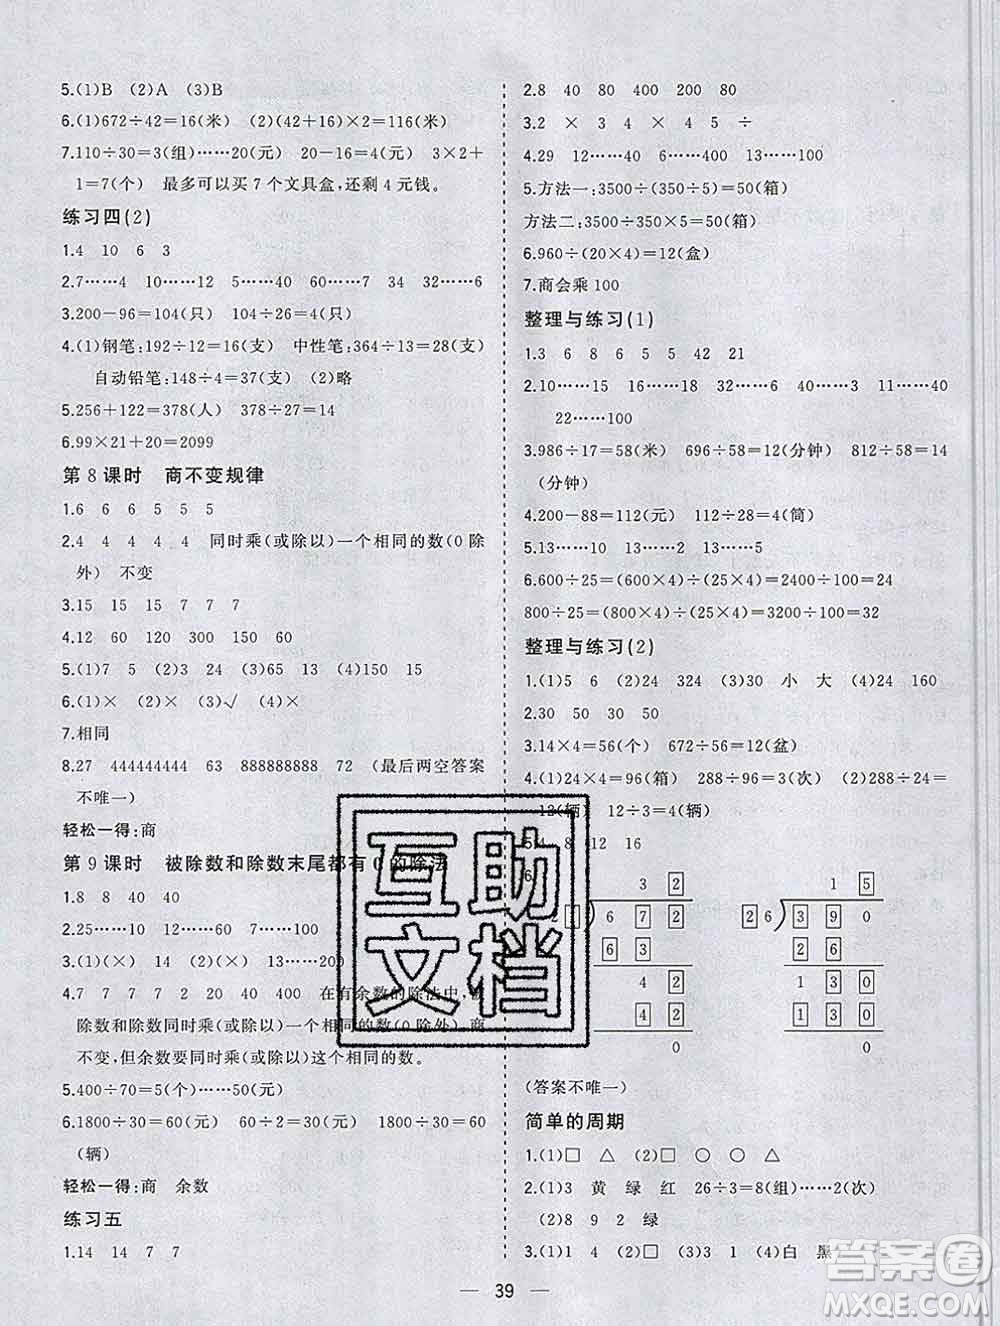 5.(1)B (2)A (3)B
6.(1)672÷42=16(米) (2)(42+16)×2=116(米)
7.110÷30=3(组)……20(元) 20-16=4(元) 3×2+
1=7(个) 最多可以买 7 个文具盒,还剩 4 元钱。
练习四(2)
1.4 10 6 3
2.7……4 10……12 5……40 60……7 34 32……6
3.200-96=104(只) 104÷26=4(只)
4.(1)钢笔:192÷12=16(支) 中性笔:364÷13=28(支)
自动铅笔:148÷4=37(支) (2)略
5.256+122=378(人) 378÷27=14
6.99×21+20=2099
第 8 课时 商不变规律
1.6 6 6 5 5 5
2.4 4 4 4 4 同时乘(或除以)一个相同的数(0 除
外) 不变
3.15 15 15 7 7 7
4.12 60 120 150 130 60
5.(1)7 5 (2)3 24 (3)65 13 (4)150 15
6.(1)× (2)× (3)√ (4)×
7.相同
8.27 444444444 63 888888888 72 (最后两空答案
不唯一)
轻松一得:商
第 9 课时 被除数和除数末尾都有 0 的除法
1.8 8 40 40
2.25……20 12……60 7……100
3.(1)(×) 14 (2)(×) 13……200
4.7 7 7 7 2 20 40 400 在有余数的除法中,被
除数和除数同时乘(或除以)一个相同的数(0 除外),商
不变,但余数要同时乘(或除以)这个相同的数。
5.400÷70=5(个)……50(元)
6.1800÷30=60(元) 60÷2=30(元) 1800÷30=60
(辆)
轻松一得:商 余数
练习五
1.14 14 7 7
2.8 40 80 400 200 80
3.2 × 3 4 × 4 5 ÷
4.29 12……40 15……30 13……100
5.方法一:3500÷(350÷5)=50(箱)
方法二:3500÷350×5=50(箱)
6.960÷(20×4)=12(盒)
7.商会乘 100
整理与练习(1)
1.3 6 8 6 5 5 42 21
2.10……15 16……18 32……3 40 11……40
22……100
3.986÷17=58(米) 696÷58=12(分钟) 812÷58=14
(分钟)
4.200-88=112(元) 112÷28=4(筒)
5.13……10 13……2 13……5
6.600÷25=(600×4)÷(25×4)=2400÷100=24
800÷25=(800×4)÷(25×4)=3200÷100=32
整理与练习(2)
1.(1)5 6 (2)24 324 (3)30 小 大 (4)24 160
2.30 50 30 50
3.14×4=56(个) 672÷56=12(盆)
4.(1)24×4=96(箱) 288÷96=3(次) (2)288÷24=
12(辆) 12÷3=4(辆)
5.4 8 12 16
6.
3 2 1 5
2 1 6 7 2 2 6 3 9 0
6 3 2 6
4 2 1 3 0
4 2 1 3 0
0 0
(答案不唯一)
简单的周期
1.(1)□ △ (2)□ ○ ○ △
2.(1)3 黄 绿 红 26÷3=8(组)……2(次)
(2)8 9 2 绿
3.(1)1 4 (2)□ (3)3 1 (4)白 黑
39
互助
文档
答案圈
MXQE.COM